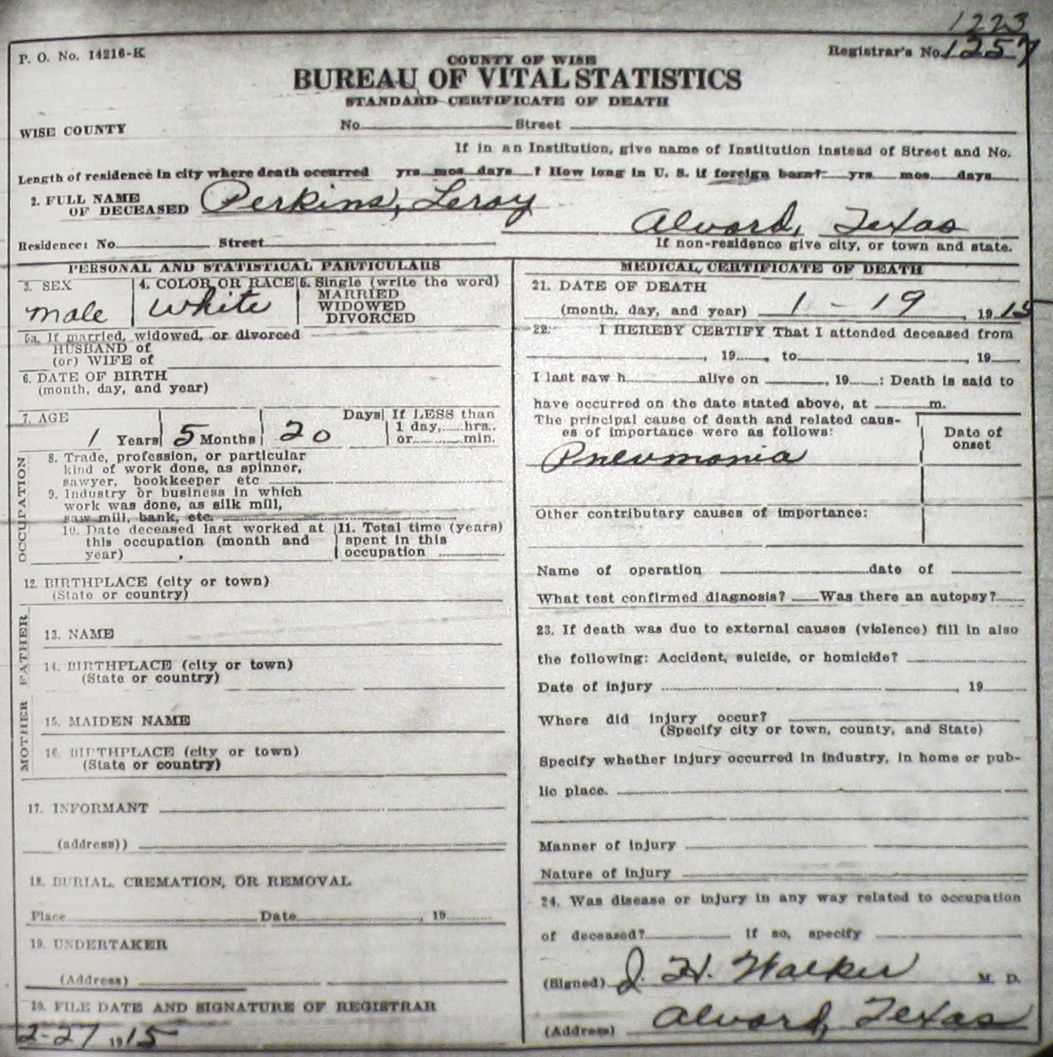 1223
P. O. No. 14216-K
Registrar's No. 1257
COUNTY OF WISE
BUREAU OF VITAL STATISTICS
STANDARD CERTIFICATE OF DEATH
WISE COUNTY No. Street
If in an Institution, give name of Institution instead of Street and No.
Length of residence in city where death occurred yrs mos days ? How long in U. S. if foreign born? yrs mos days
2. FULL NAME
OF DECEASED Perkins, Leroy
Alvord, Texas
Residence: No. Street
If non-residence give city, or town and state.
PERSONAL AND STATISTICAL PARTICULARS
3. SEX
male
4. COLOR OR RACE
White
5. Single (write the word)
MARRIED
WIDOWED
DIVORCED
5a. If married, widowed, or divorced
HUSBAND of
(or) WIFE of
6. DATE OF BIRTH
(month, day, and year)
7. AGE
1 Years 5 Months 20 Days
If LESS than
1 day, hrs.
or min.
OCCUPATION
8. Trade, profession, or particular
kind of work done, as spinner,
sawyer, bookkeeper etc
9. Industry or business in which
work was done, as silk mill,
saw mill, bank, etc.
10. Date deceased last worked at
this occupation (month and
year)
11. Total time (years)
spent in this
occupation
12. BIRTHPLACE (city or town)
(State or country)
FATHER
13. NAME
14. BIRTHPLACE (city or town)
(State or country)
MOTHER
15. MAIDEN NAME
16. BIRTHPLACE (city or town)
(State or country)
17. INFORMANT
(address))
18. BURIAL, CREMATION, OR REMOVAL
Place Date , 19
19. UNDERTAKER
(Address)
20. FILE DATE AND SIGNATURE OF REGISTRAR
2-27 1915
MEDICAL CERTIFICATE OF DEATH
21. DATE OF DEATH
(month, day, and year) 1 - 19 1915
22. I HEREBY CERTIFY That I attended deceased from
, 19 , to , 19
I last saw h alive on , 19 : Death is said to
have occurred on the date stated above, at m.
The principal cause of death and related caus-
es of importance were as follows:
Date of
onset
Pneumonia
Other contributary causes of importance:
Name of operation date of
What test confirmed diagnosis? Was there an autopsy?
23. If death was due to external causes (violence) fill in also
the following: Accident, suicide, or homicide?
Date of injury , 19
Where did injury occur?
(Specify city or town, county, and State)
Specify whether injury occurred in industry, in home or pub-
lic place.
Manner of injury
Nature of injury
24. Was disease or injury in any way related to occupation
of deceased? If so, specify
(Signed) J. H. Walker M. D.
(Address) Alvord, Texas